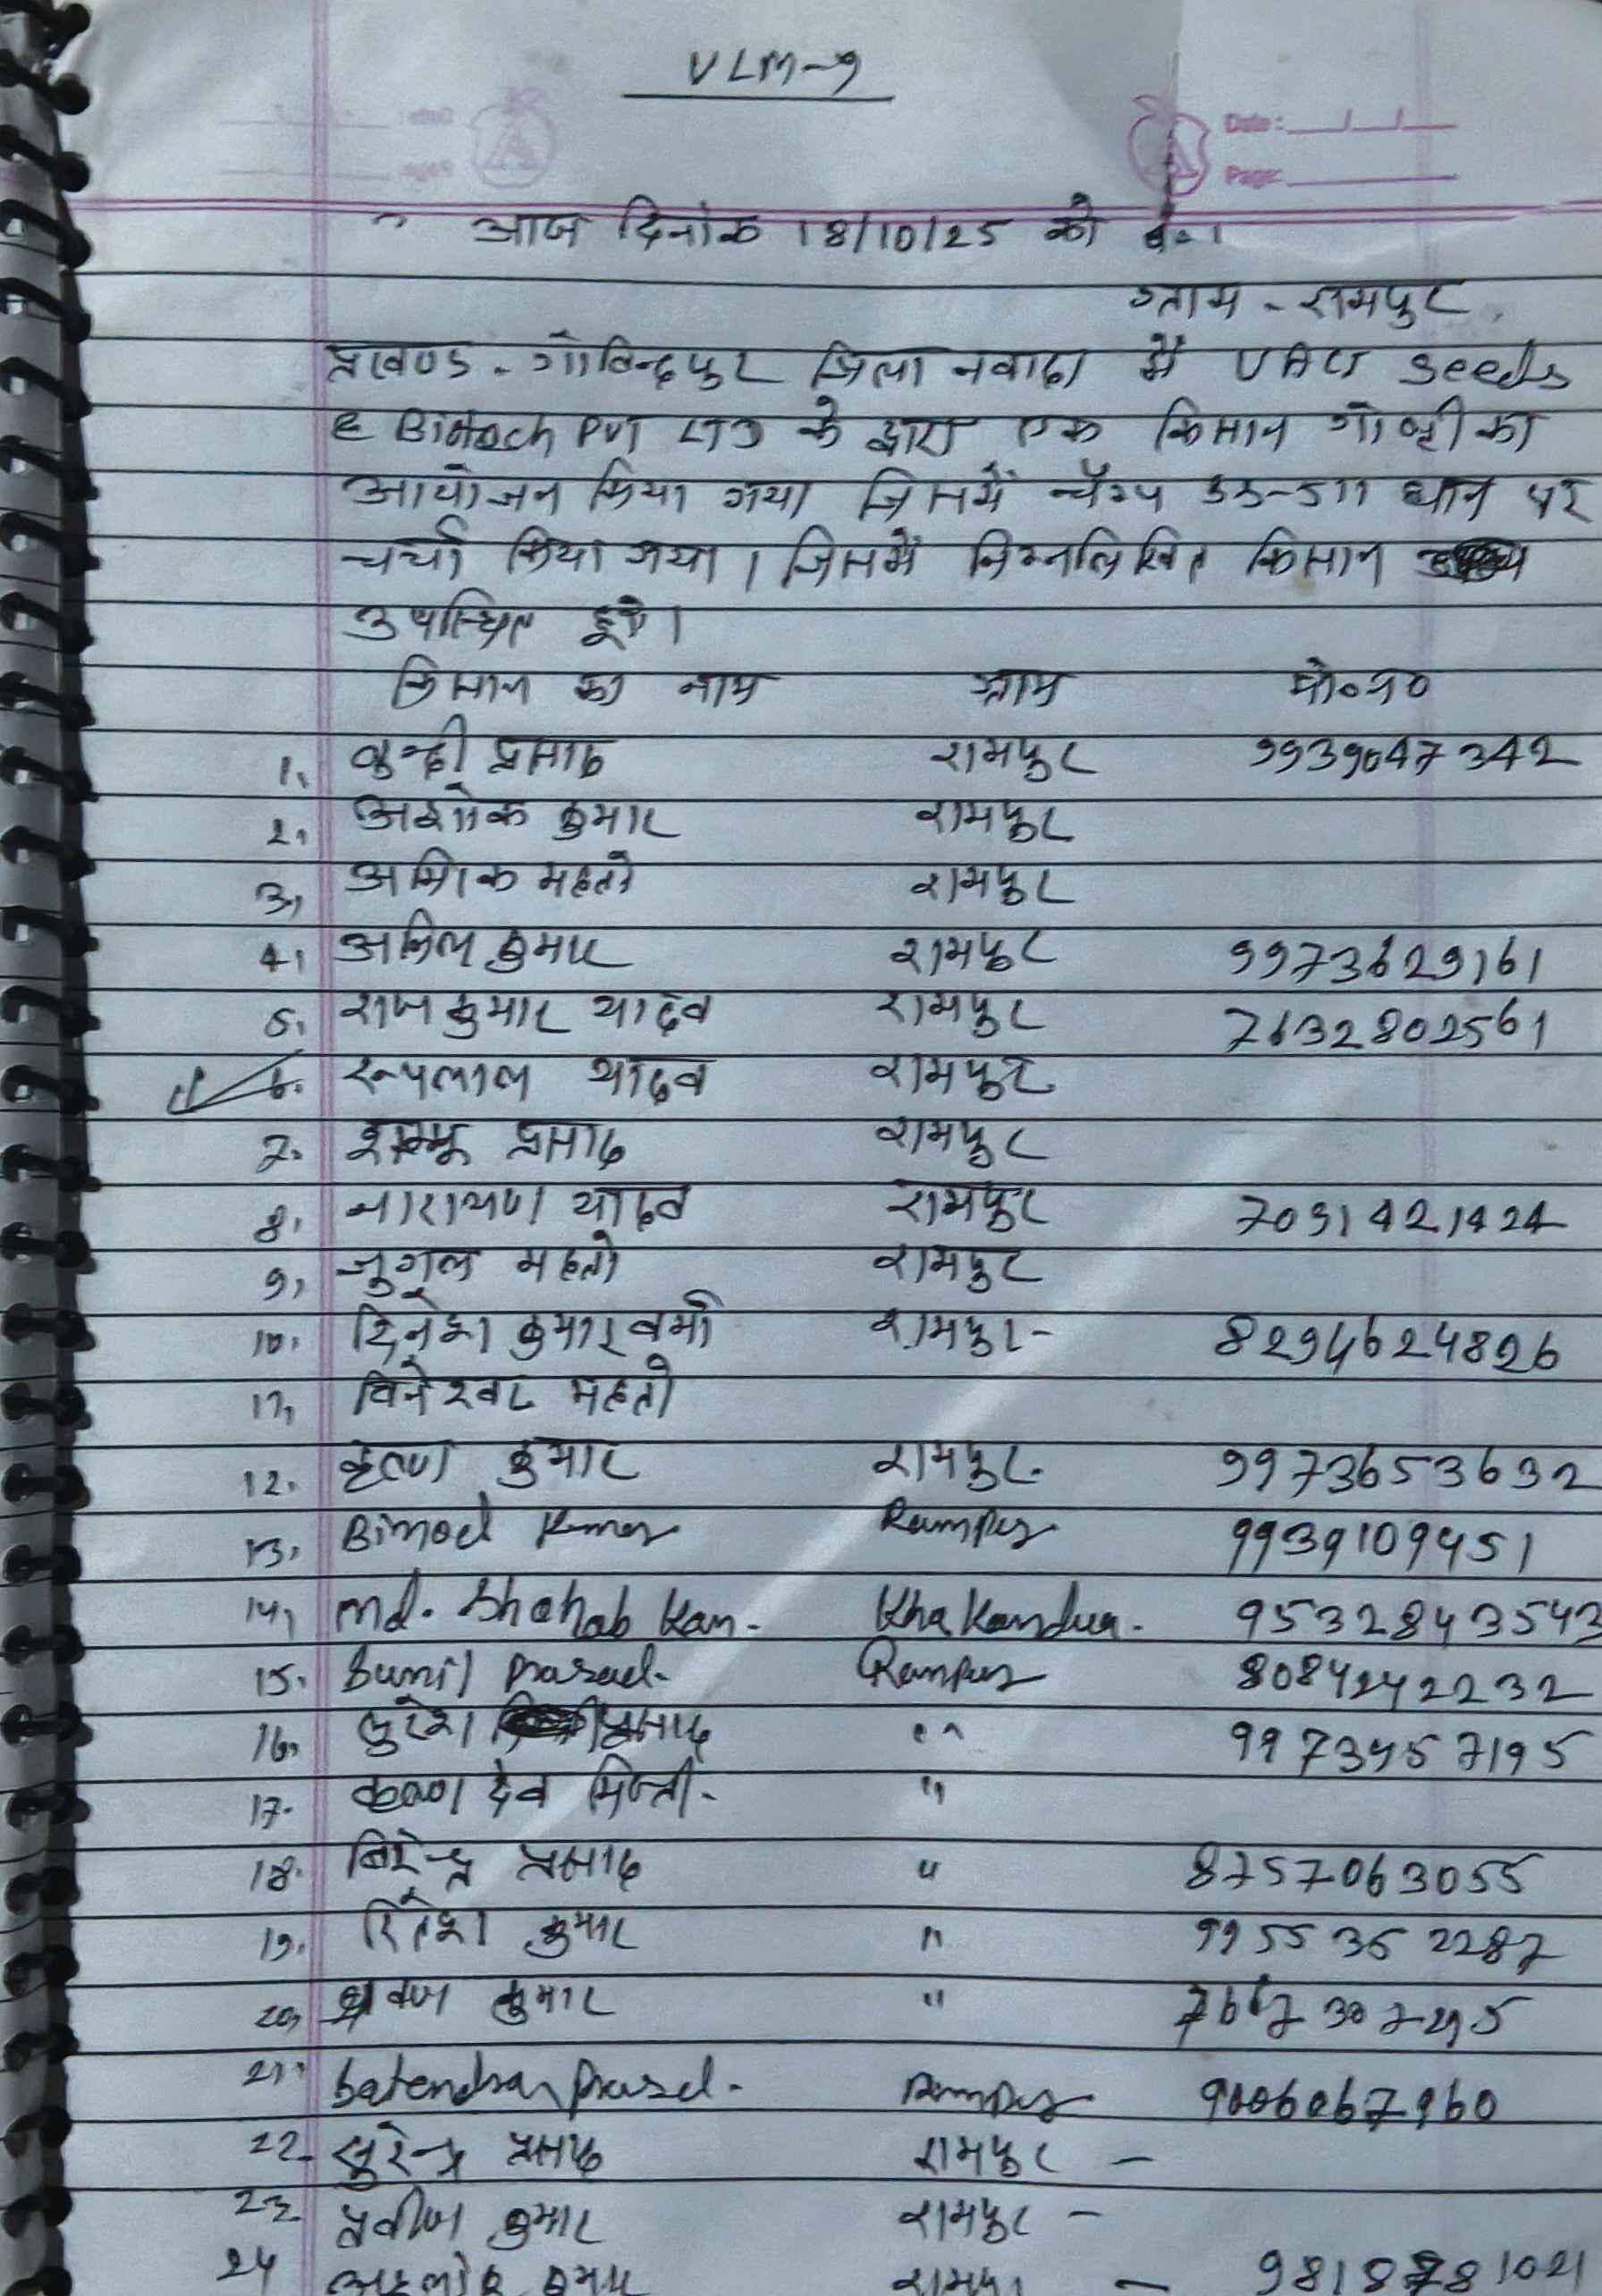 VLM-9
Date:
Page:
" आज दिनांक 18/10/25 को
ग्राम - रामपुर,
प्रखण्ड - गोविन्दपुर जिला नवादा में UAU Seeds
& Biotech Pvt LTD के द्वारा एक किसान गोष्ठी का
आयोजन किया गया जिसमें चैम्प 33-511 धान पर
चर्चा किया गया । जिसमें निम्नलिखित किसान
उपस्थित हुये ।
किसान का नाम ग्राम मो०न०
1. प्रसाद रामपुर 9939047342
2. अशोक कुमार रामपुर
3, महतो रामपुर
4. अनिल कुमार रामपुर 9973629161
5. राज कुमार यादव रामपुर 7632802561
6. रूपलाल यादव रामपुर
7. शम्भू प्रसाद रामपुर
8. नारायण यादव रामपुर 7091421424
9, जुगल महतो रामपुर
10. दिनेश कुमार वर्मा रामपुर - 8294624826
11, महतो
12. कृष्ण कुमार रामपुर. 9973653632
13. Binod Kumar Rampur 9939109451
14, md. Shahab Kan. Kha Kandua. 9532843543
15. Sunil Prasad. Rampur 8084242232
16. सुरेश प्रसाद " 9973457195
17. कृष्ण देव मिस्त्री. "
18. बिरेन्द्र प्रसाद " 8757063055
19. रितेश कुमार " 9955362287
20, श्रवण कुमार "
21. Satendra Prasad. Rampur 9006067960
22. सुरेन्द्र प्रसाद रामपुर -
23 प्रवीण कुमार रामपुर -
24 कुमार रामपुर -